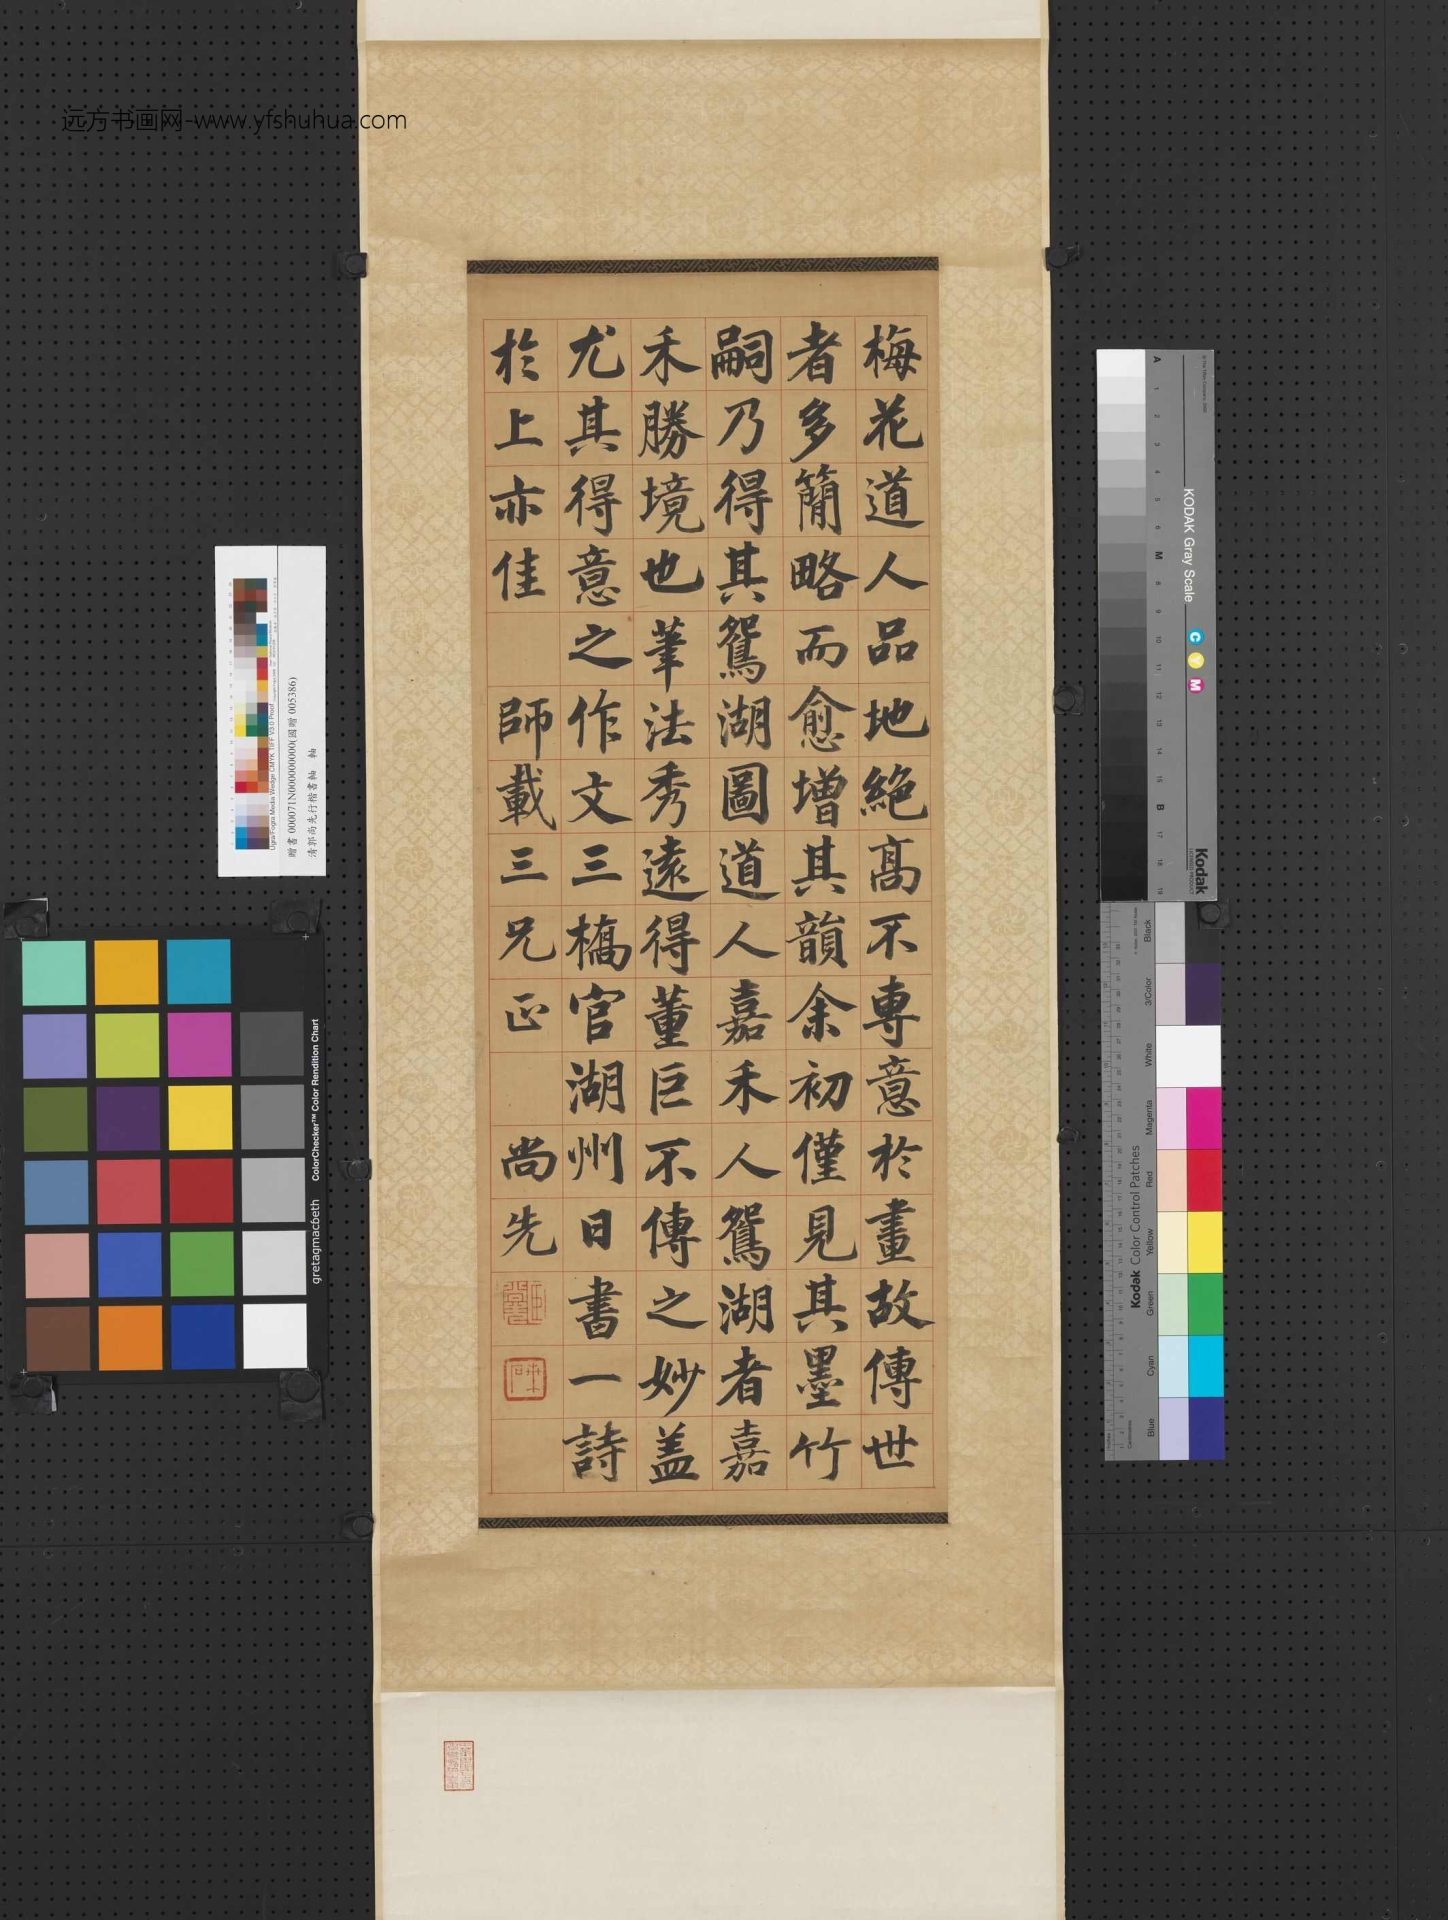 远方书画网-www.yfshuhua.com
梅花道人品地絶高不專意於畫故傳世
者多簡略而愈增其韻余初僅見其墨竹
嗣乃得其鴛湖圖道人嘉禾人鴛湖者嘉
禾勝境也筆法秀遠得董巨不傳之妙盖
尤其得意之作文三橋官湖州日書一詩
於上亦佳 師載三兄正 尚先
贈書 000071N000000000(國贈 005386)
清郭尚先行楷書軸 軸
Ugra/Fogra Media Wedge CMYK TIFF V3.0 Proof
ColorChecker™ Color Rendition Chart
gretagmacbeth
KODAK Gray Scale
C Y M
Kodak
LICENSED PRODUCT
A 1 2 3 4 5 6 M 8 9 10 11 12 13 14 15 B 17 18 19
Kodak Color Control Patches
Black
3/Color
White
Magenta
Red
Yellow
Green
Cyan
Blue